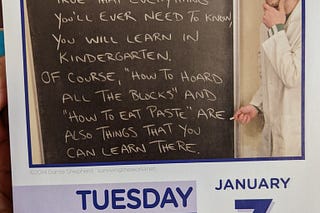 TRUE THAT EVERYTHING
YOU'LL EVER NEED TO KNOW,
YOU WILL LEARN IN
KINDERGARTEN.
OF COURSE, "HOW TO HOARD
ALL THE BLOCKS" AND
"HOW TO EAT PASTE" ARE
ALSO THINGS THAT YOU
CAN LEARN THERE.
©2014 Dante Shepherd
TUESDAY
JANUARY
7